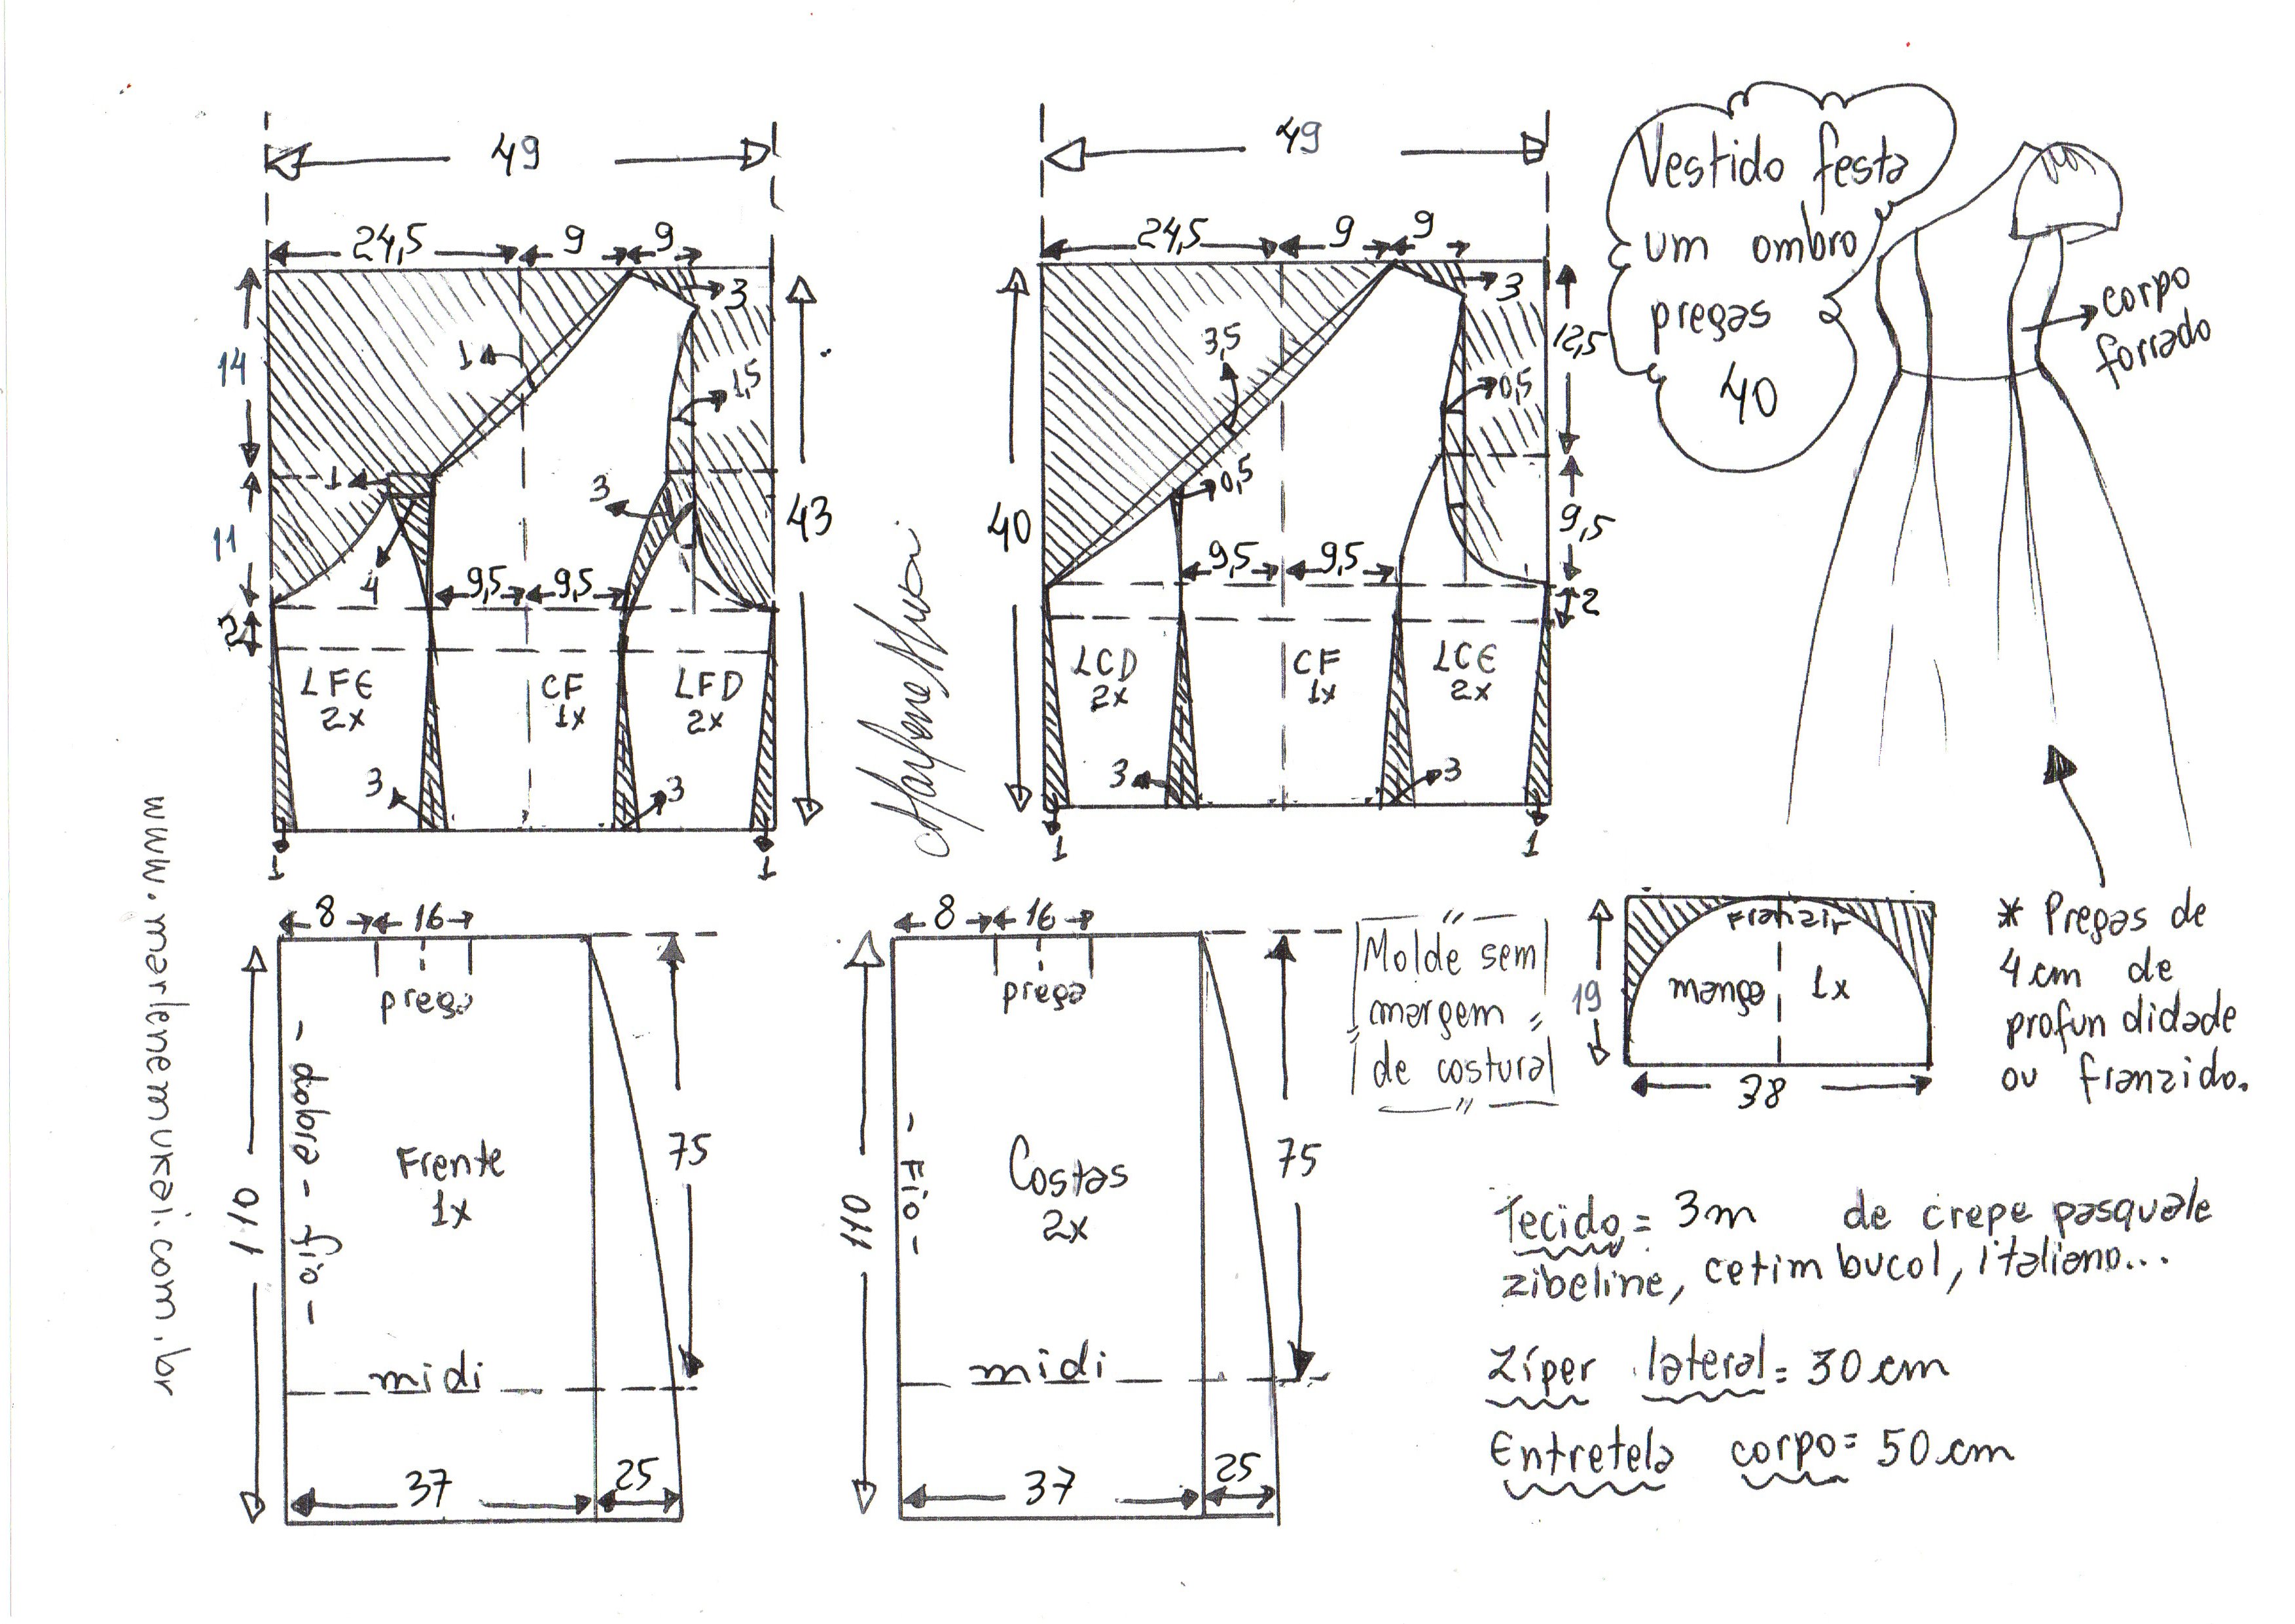 49
24,5
9
9
3
14
1
1,5
1
3
43
11
4
9,5
9,5
2
LFE
2x
CF
1x
LFD
2x
3
3
1
1
49
24,5
9
9
3
12,5
3,5
0,5
0,5
40
9,5
9,5
9,5
2
LCD
2x
CF
1x
LCE
2x
3
3
1
1
Vestido festa
um ombro
pregas
40
corpo
forrado
www.marlenemukai.com.br
8
16
prega
110
- dobra - fio -
Frente
1x
75
midi
37
25
8
16
prega
110
- Fio -
Costas
2x
75
midi
37
25
Molde sem
margem
de costura
Franzir
manga 1x
19
38
* Pregas de
4 cm de
profun didade
ou franzido.
Tecido = 3m de crepe pasquale
zibeline, cetim bucol, italiano...
Zíper lateral = 30 cm
Entretela corpo = 50 cm